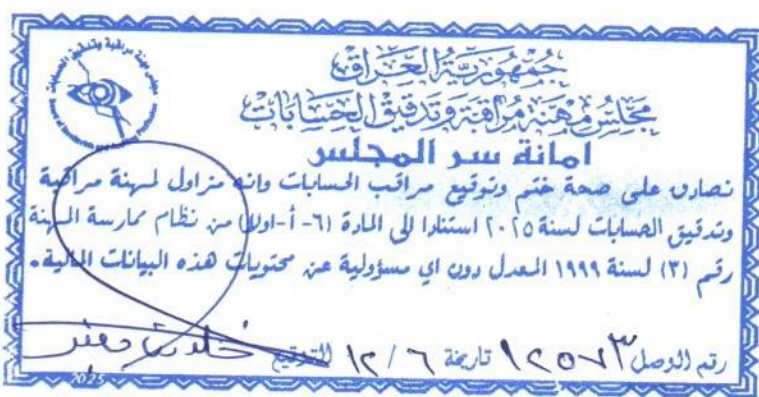 مجلس مهنة مراقبة وتدقيق الحسابات
جمهورية العراق
مجلس مهنة مراقبة وتدقيق الحسابات
امانة سر المجلس
نصادق على صحة ختم وتوقيع مراقب الحسابات وانه مزاول لمهنة مراقبة
وتدقيق الحسابات لسنة ٢٠٢٥ استنادا الى المادة (٦- أ-اولا) من نظام ممارسة المهنة
رقم (٣) لسنة ١٩٩٩ المعدل دون اي مسؤولية عن محتويات هذه البيانات المالية.
رقم الوصل ١٢٥٧٣ تاريخة ٦ / ١٢ التوقيع
2025